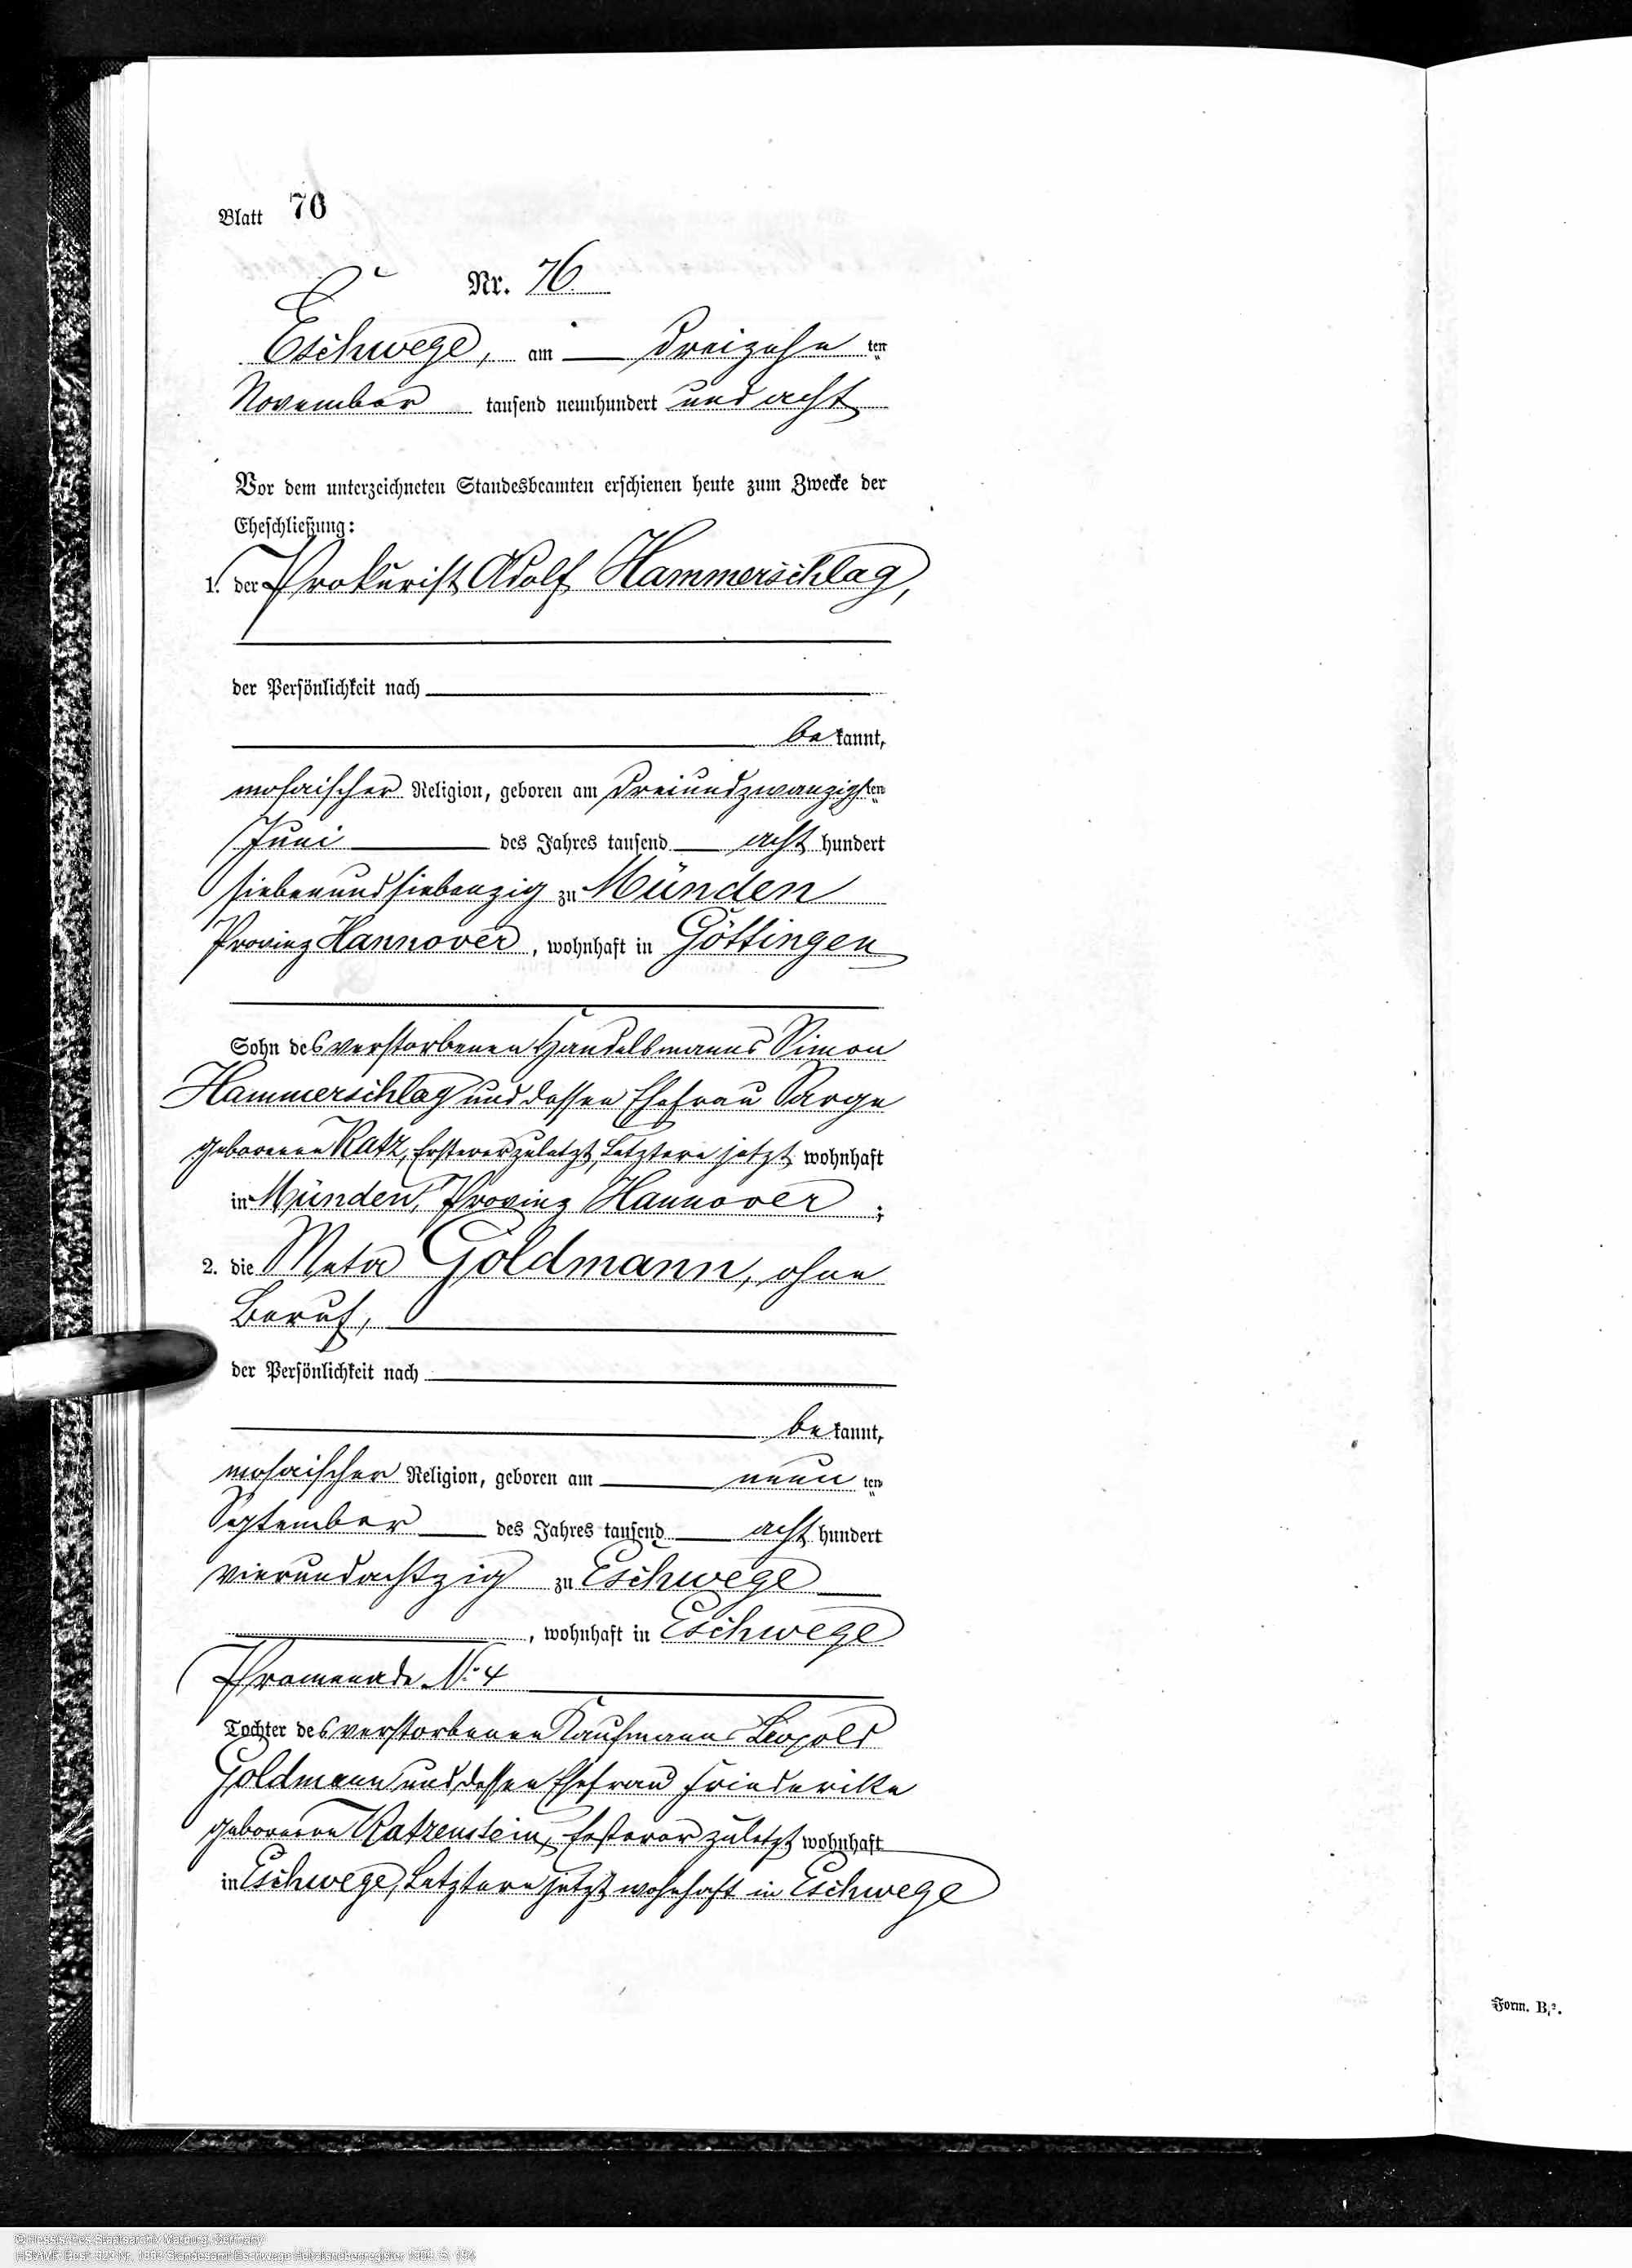 Blatt 76
Nr. 76
Eschwege, am dreizehn ten
November tausend neunhundert und acht
Vor dem unterzeichneten Standesbeamten erschienen heute zum Zwecke der
Eheschließung:
1. der Prokurist Adolf Hammerschlag,
der Persönlichkeit nach
be kannt,
mosaischer Religion, geboren am dreiundzwanzigsten
Juni des Jahres tausend acht hundert
siebenundsiebenzig zu Münden
Provinz Hannover, wohnhaft in Göttingen
Sohn des verstorbenen Handelsmanns Simon
Hammerschlag und dessen Ehefrau Sarge
geborenen Katz, Ersterer zuletzt, Letztere jetzt wohnhaft
in Münden, Provinz Hannover ;
2. die Meta Goldmann, ohne
Beruf,
der Persönlichkeit nach
be kannt,
mosaischer Religion, geboren am neun ten
September des Jahres tausend acht hundert
vierundachtzig zu Eschwege
, wohnhaft in Eschwege
Promenade No 4
Tochter des verstorbenen Kaufmanns Leopold
Goldmann und dessen Ehefrau Friederike
geborenen Katzenstein, Ersterer zuletzt wohnhaft
in Eschwege, Letztere jetzt wohnhaft in Eschwege
Form. B,².
© Hessisches Staatsarchiv Marburg, Germany